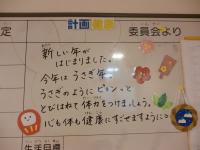 定
計画
委員会より
新しい年が
はじまりました。
今年は うさぎ年
うさぎのように ピョンっと
とびはねて 体力をつけましょう。
心も体も健康にすごせますように
生活目標